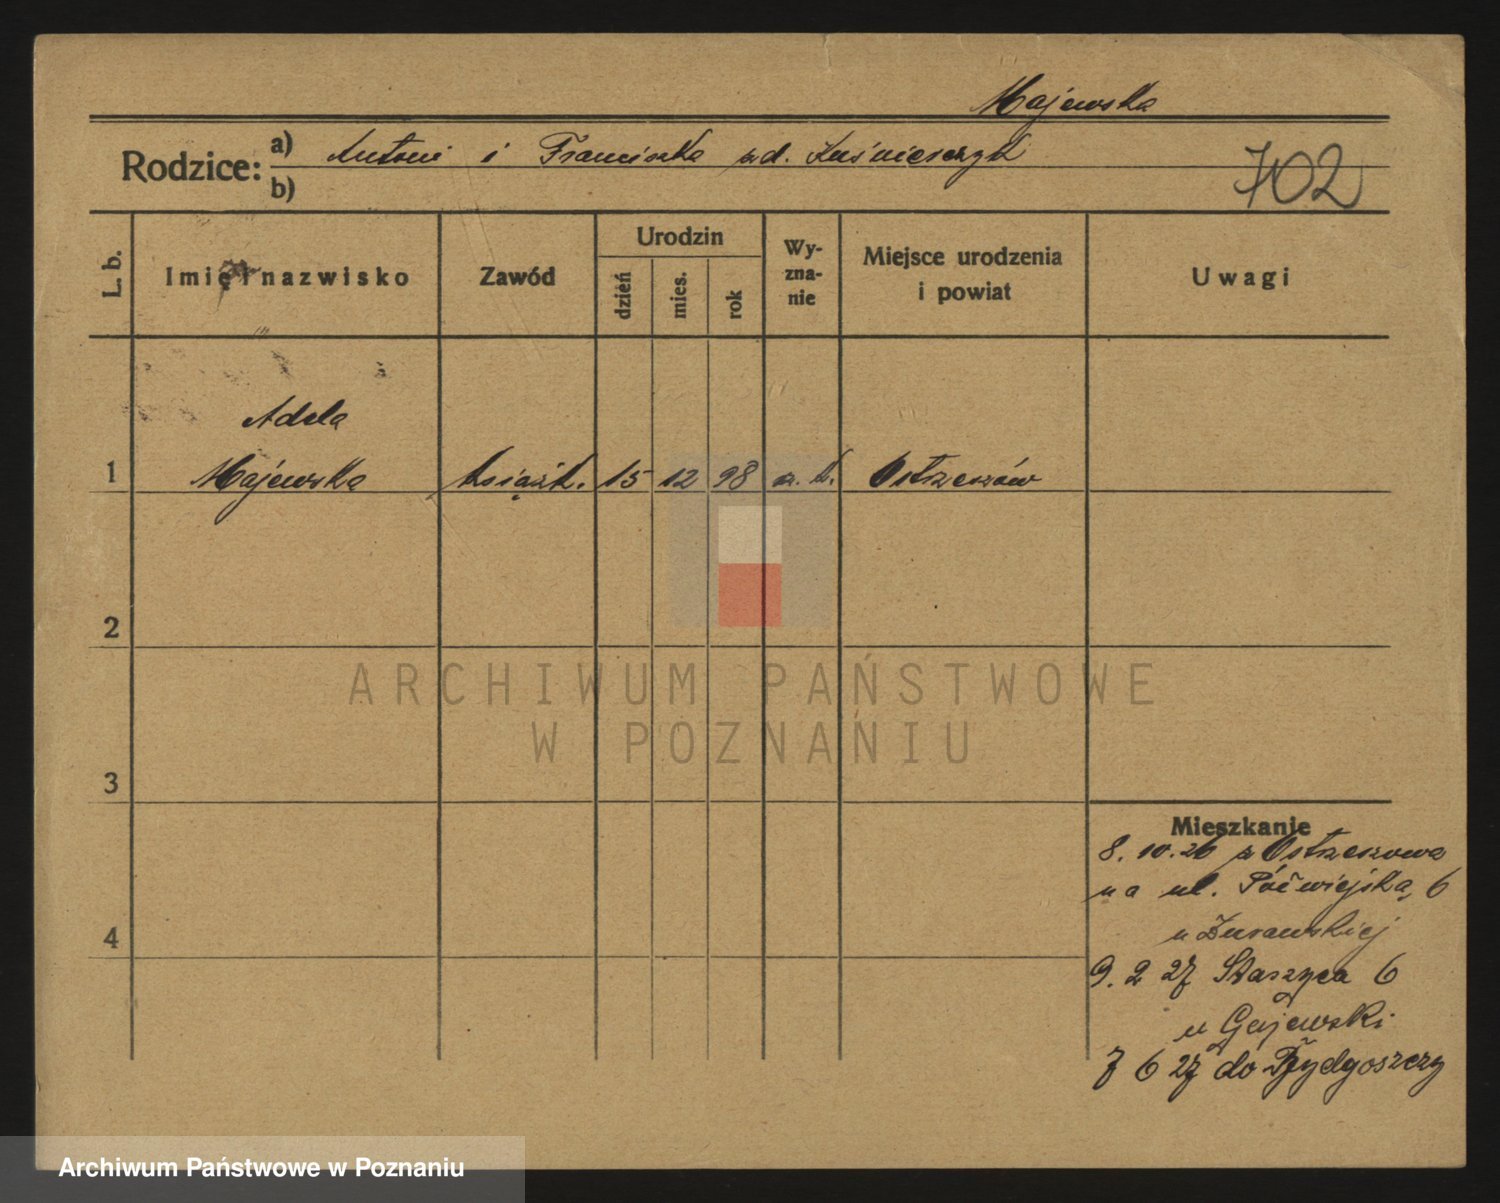 Majewska
Rodzice: a) Antoni i Franciszka zd. Kuśnierczyk
b)
702
L. b.
Imię i nazwisko
Zawód
Urodzin
dzień
mies.
rok
Wy-
zna-
nie
Miejsce urodzenia
i powiat
Uwagi
Adela
1 Majewska książk. 15 12 98 rz. k. Ostrzeszów
2
3
4
Mieszkanie
8. 10. 26 z Ostrzeszowa
na ul. Półwiejską 6
u Żurawskiej
9. 2 27 Staszyca 6
u Gajewski
7 6 27 do Bydgoszczy
ARCHIWUM PAŃSTWOWE
W POZNANIU
Archiwum Państwowe w Poznaniu